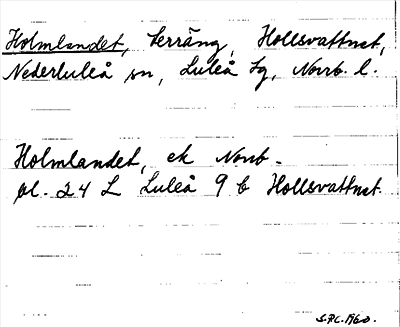 Holmlandet, terräng, Hollsvattnet,
Nederluleå sn, Luleå tg, Norrb. l.
Holmlandet, ek Norrb-
bl. 24 L Luleå 9 b Hollsvattnet.
1960.